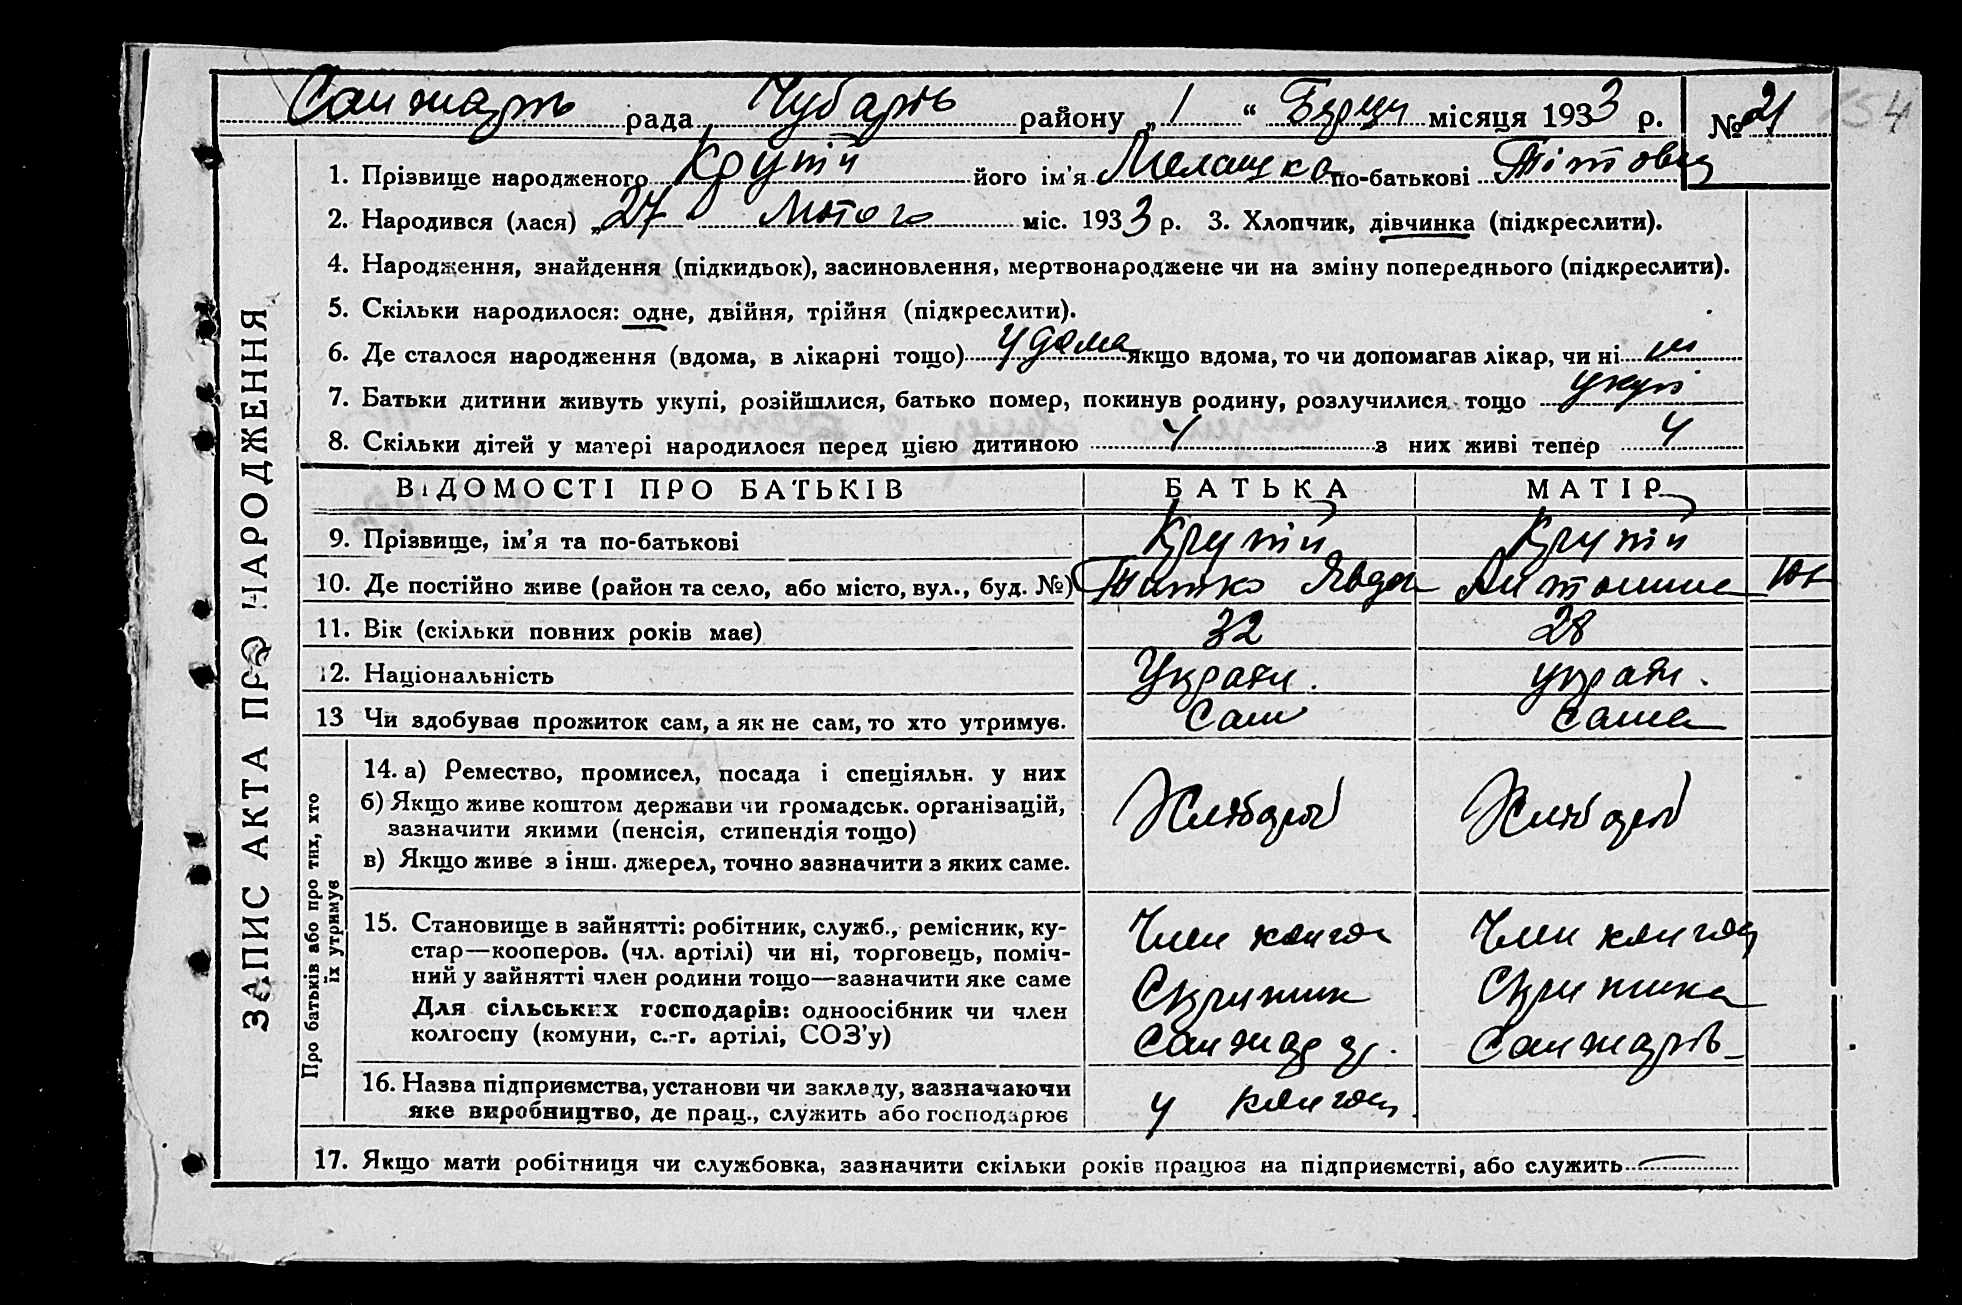 Санжарів рада Чубарів району „1“ Берези місяця 1933 р. № 21 154
1. Прізвище народженого Крутій його ім'я Мелашка по-батькові Тітовна
2. Народився (лася) „27 Лютого міс. 1933 р. 3. Хлопчик, дівчинка (підкреслити).
4. Народження, знайдення (підкидьок), засиновлення, мертвонароджене чи на зміну попереднього (підкреслити).
5. Скільки народилося: одне, двійня, трійня (підкреслити).
6. Де сталося народження (вдома, в лікарні тощо) удома якщо вдома, то чи допомагав лікар, чи ні ні
7. Батьки дитини живуть укупі, розійшлися, батько помер, покинув родину, розлучилися тощо укупі
8. Скільки дітей у матері народилося перед цією дитиною 4 з них живі тепер 4
ЗАПИС АКТА ПРО НАРОДЖЕННЯ
ВІДОМОСТІ ПРО БАТЬКІВ БАТЬКА МАТІР
9. Прізвище, ім'я та по-батькові Крутій Крутій
10. Де постійно живе (район та село, або місто, вул., буд. №)
11. Вік (скільки повних років має) 32 28
12. Національність Україн. україн.
13 Чи здобував прожиток сам, а як не сам, то хто утримує. Сам сама
Про батьків або про тих, хто
їх утримує
14. а) Ремество, промисел, посада і спеціяльн. у них
б) Якщо живе коштом держави чи громадськ. організацій,
зазначити якими (пенсія, стипендія тощо)
Хлібороб Хлібороб
в) Якщо живе з інш. джерел, точно зазначити з яких саме.
15. Становище в зайнятті: робітник, служб., ремісник, ку-
стар—кооперов. (чл. артілі) чи ні, торговець, поміч-
ний у зайнятті член родини тощо—зазначити яке саме
Для сільських господарів: одноосібник чи член
колгоспу (комуни, с.-г. артілі, СОЗ'у)
Член колгос Член колгосп
Санжар Санжарів
16. Назва підприємства, установи чи закладу, зазначаючи
яке виробництво, де прац., служить або господарює
у колгосп.
17. Якщо мати робітниця чи службовка, зазначити скільки років працює на підприємстві, або служить —